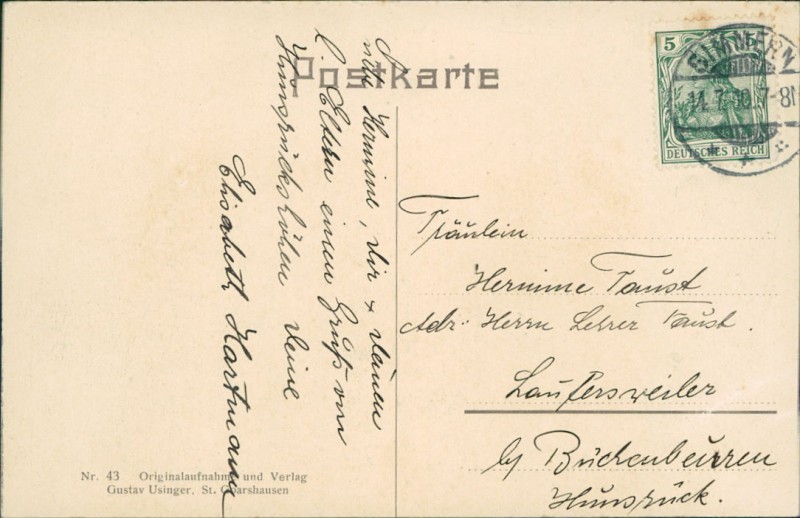 Postkarte
5 5
DEUTSCHES REICH
SIMMERN
11.7.10.7-8N
Hermine, dir & deinen
l. Eltern einen Gruß von
Hunsrückshöhen deine
Elisabeth Hartmann
Fräulein
Hermine Faust
Adr. Herrn Lehrer Faust.
Laufersweiler
by Büchenbeurren
Hunsrück.
Nr. 43 Originalaufnahme und Verlag
Gustav Usinger, St. Goarshausen